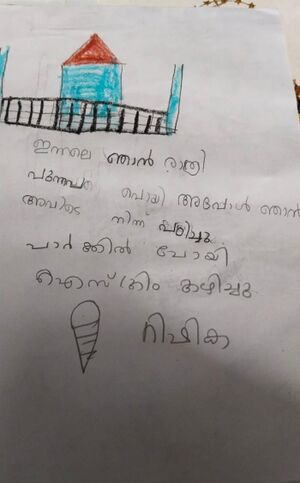 ഇന്നലെ ഞാൻ രാത്രി
പോയി അപ്പോൾ ഞാൻ
അവിടെ നിന്ന്
പാർക്കിൽ പോയി
ഐസ്ക്രീം കഴിച്ചു
റിഷിക